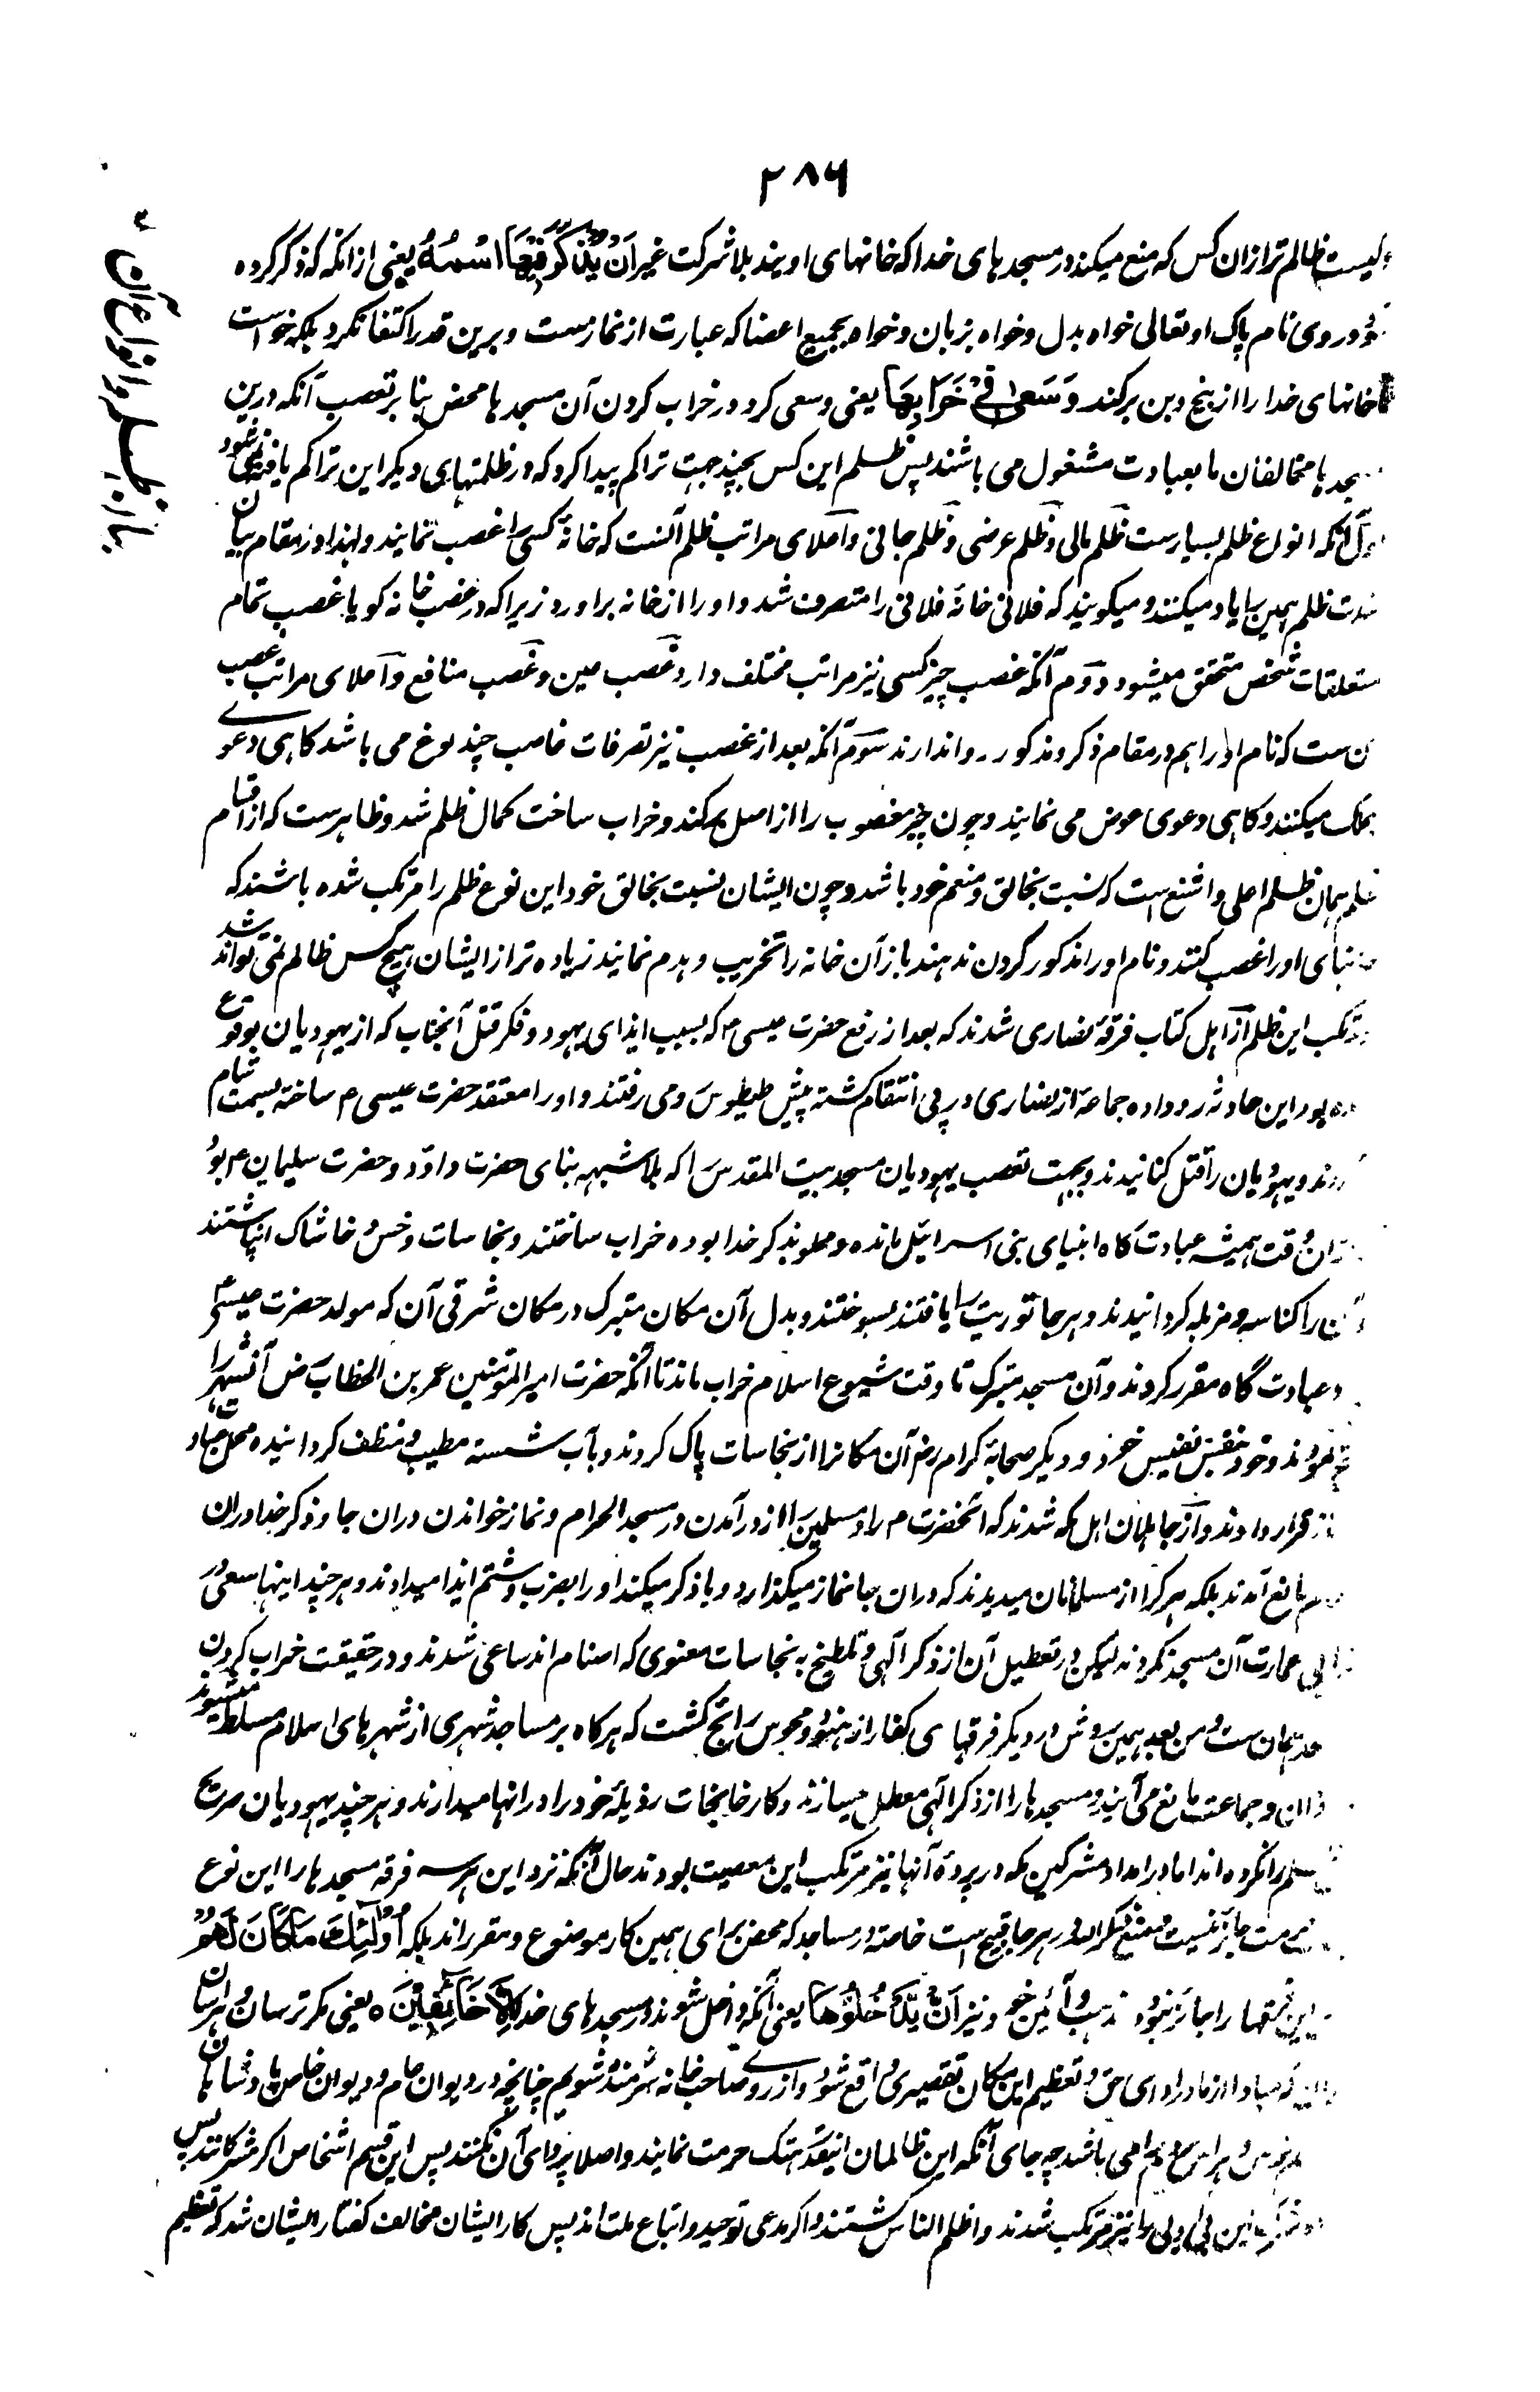 ۲۸۶
کیست ظالم تر ازان کس که منع میکند در مسجد های خدا که خانهای اویند بلا شرکت غیر اَنْ یُّذْکَرَ فِیْهَا اسْمُهٗ یعنی از انکه ذکر کرده
در وی نام پاک او تعالی خواه بدل و خواه بزبان و خواه بجمیع اعضا که عبارت از نمازست و برین قدر اکتفا نکرد بلکه خواست
خانهای خدا را از بیخ و بن برکند وَ سَعٰی فِیْ خَرَابِهَا یعنی و سعی کرد در خراب کردن آن مسجد ها محض بنا بر تعصب آنکه درین
مسجد ها مخالفان ما بعبادت مشغول می باشند پس ظلم این کس بچند جهت تراکم پیدا کرد که در ظلمتهای دیگر این تراکم یافته نمی شود
اول آنکه انواع ظلم بسیارست ظلم مالی و ظلم عرضی و ظلم جانی و اعلای مراتب ظلم آنست که خانهٔ کسی را غصب نمایند و لهذا در مقام بیان
شدت ظلم همین را یاد میکنند و میگویند که فلانی خانهٔ فلانی را متصرف شد و او را از خانه برآورد زیراکه در غصب خانه گویا غصب تمام
متعلقات شخص متحقق میشود دوم آنکه غصب چیز کسی نیز مراتب مختلف دارد غصب عین و غصب منافع و اعلای مراتب غصب
آن ست که نام او را هم در مقام ذکر مذکور روا ندارند سوم آنکه بعد از غصب نیز تصرفات غاصب چند نوع می باشد گاهی دعوے
ملک میکنند و گاهی دعوی عوض می نمایند و چون چیز مغصوب را از اصل برکند و خراب ساخت کمال ظلم شد و ظاهرست که از اقسام
ظلم همان ظلم اعلی و اشنع است که نسبت بخالق و منعم خود باشد و چون ایشان نسبت بخالق خود این نوع ظلم را مرتکب شده باشند که
خانهای او را غصب کنند و نام او را مذکور کردن ندهند باز آن خانه را تخریب و هدم نمایند زیاده تر از ایشان هیچ کس ظالم نمی تواند شد
مرتکب این ظلم از اهل کتاب فرقهٔ نصاری شدند که بعد از رفع حضرت عیسی ع که بسبب ایذای یهود و فکر قتل آنجناب که از یهودیان بوقوع
بود این حادثه رو داده جماعهٔ از نصاری در پی انتقام گشته پیش طیطوس رومی رفتند و او را معتقد حضرت عیسی م ساخته بسمت شام
آوردند و یهودیان را قتل کنانیدند و بجهت تعصب یهودیان مسجد بیت المقدس را که بلا شبهه بنای حضرت داؤد و حضرت سلیمان ع بود
ازان وقت همیشه عبادت گاه انبیای بنی اسرائیل مانده و مملو بذکر خدا بوده خراب ساختند و بنجاسات و خس و خاشاک انباشتند
آن را کناسه و مزبله گردانیدند و هر جا توریت را یافتند بسوختند و بدل آن مکان متبرک در مکان شرقی آن که مولد حضرت عیسی ع
عبادت گاه مقرر کردند و آن مسجد متبرک تا وقت شیوع اسلام خراب ماند تا آنکه حضرت امیر المؤمنین عمر بن الخطاب رض آن شهر را
فتح نمودند و خود بنفس نفیس خود و دیگر صحابهٔ کرام رض آن مکانرا از نجاسات پاک کردند و بآب شسته مطیب و منظف گردانیده محل عبادت
قرار دادند و از جاهلان اهل مکه شدند که آنحضرت م را و مسلمین را از در آمدن در مسجد الحرام و نماز خواندن دران جا و ذکر خدا دران
مانع آمدند بلکه هر کرا از مسلمانان میدیدند که دران جا نماز میگذارد و یا ذکر میکند او را بضرب و شتم ایذا میدادند و هر چند اینها سعی در
خرابی عمارت آن مسجد نکردند لیکن در تعطیل آن از ذکر آلهی و تلطیخ به نجاسات معنوی که اصنام اند ساعی شدند و در حقیقت خراب کردن
همان ست و من بعد همین روش در دیگر فرقهای کفار از هنود و مجوس رائج گشت که هر گاه بر مساجد شهری از شهرهای اسلام مسلط میشوند
اذان و جماعت مانع می آیند و مسجد ها را از ذکر آلهی معطل میسازند و کارخانجات رذیلهٔ خود را در انها میدارند و هر چند یهودیان صریح
ظلم را نکرده اند اما در امداد مشرکین مکه در پردهٔ آنها نیز مرتکب این معصیت بودند حال آنکه نزد این هر سه فرقه مسجد ها را این نوع
جائز نیست در هر جا قبیح است خاصةً در مساجد که محض برای همین کار موضوع و مقرر اند بلکه اُولٰٓئِکَ مَا کَانَ لَهُمْ
این فرقها را جائز نبود در مذهب و آئین خود نیز اَنْ یَّدْخُلُوْهَا یعنی آنکه داخل شوند در مسجد های خدا اِلَّا خَآئِفِیْنَ ه یعنی مگر ترسان و هراسان
مبادا از ما در ادای حق و تعظیم این مکان تقصیری واقع شود و از روے صاحب خانه شرمنده شویم چنانچه در دیوان عام و دیوان خاص پادشاهان
می باشد چه جای آنکه این ظالمان اینقدر هتک حرمت نمایند و اصلا پروای آن نکنند پس این قسم اشخاص اگر مشرکانند پس
نیز مرتکب شدند و اظلم الناس گشتند و اگر مدعی توحید و اتباع ملت اند پس کار ایشان مخالف گفتار ایشان شد که تعظیم
بیان ظلم و انواع آن